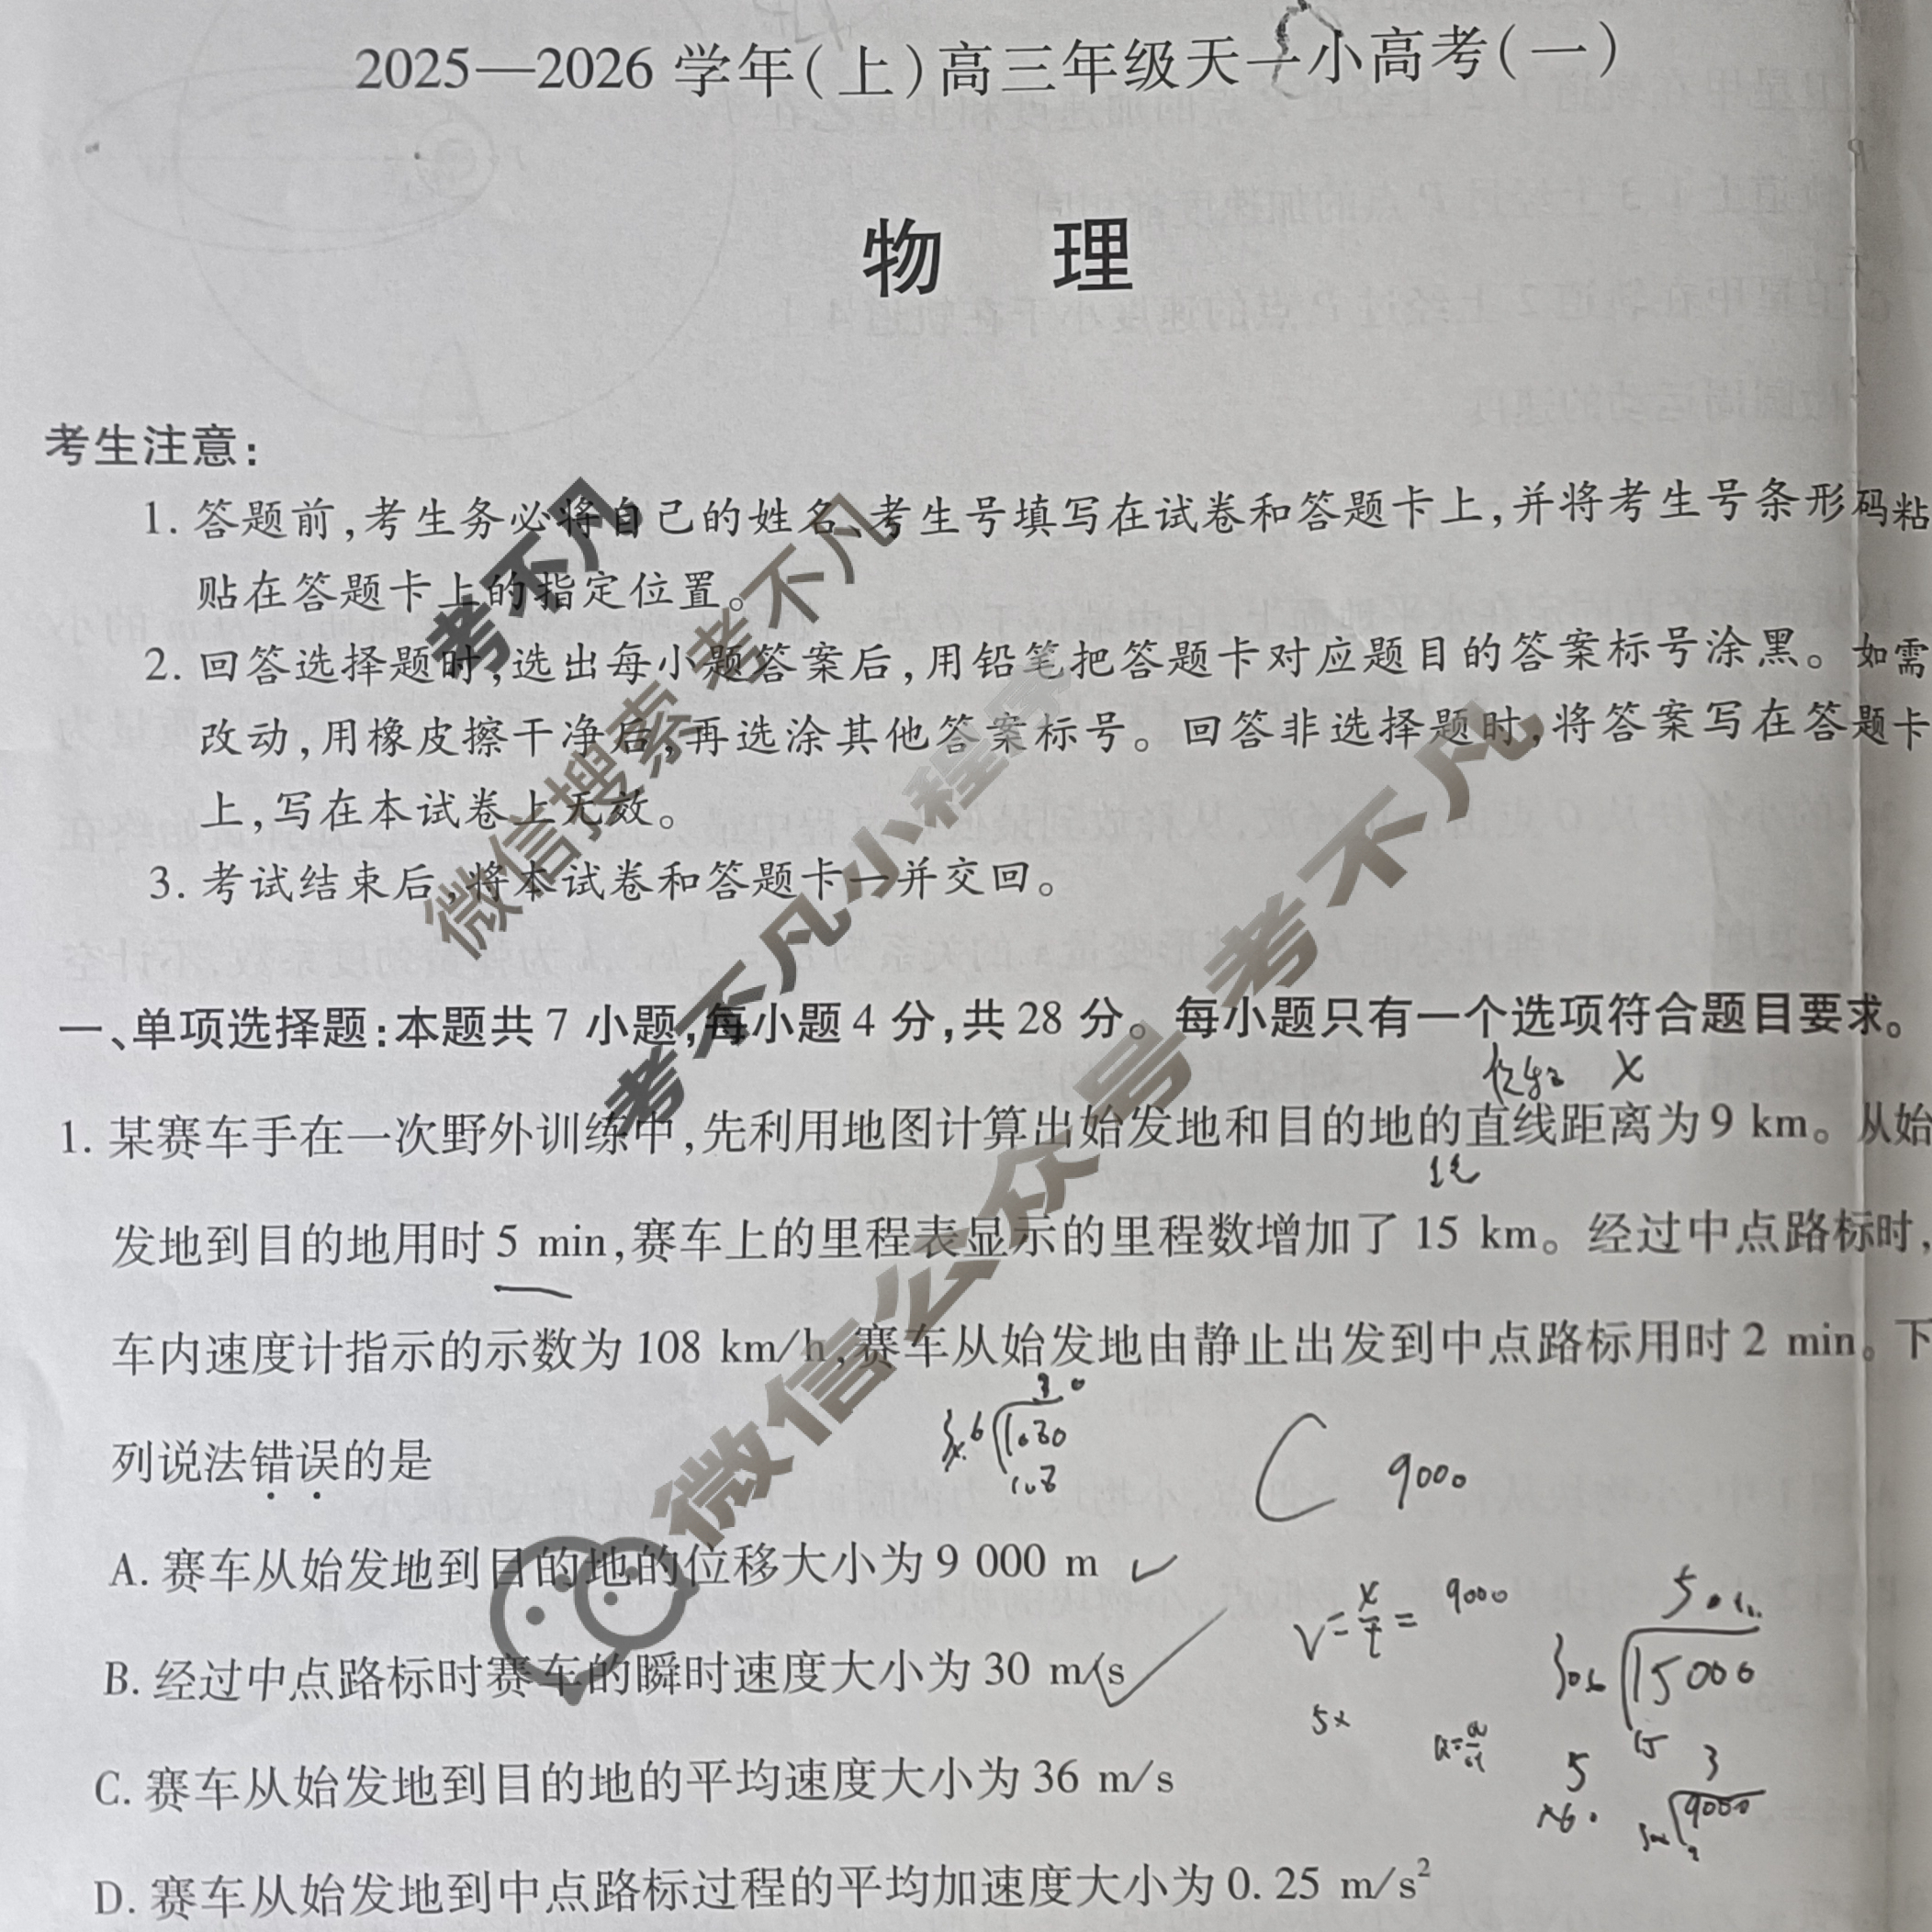 2025—2026 学年(上)高三年级天一小高考(一)
物 理
考生注意:
1. 答题前,考生务必将自己的姓名、考生号填写在试卷和答题卡上,并将考生号条形码粘
贴在答题卡上的指定位置。
2. 回答选择题时,选出每小题答案后,用铅笔把答题卡对应题目的答案标号涂黑。如需
改动,用橡皮擦干净后,再选涂其他答案标号。回答非选择题时,将答案写在答题卡
上,写在本试卷上无效。
3. 考试结束后,将本试卷和答题卡一并交回。
考不凡
微信搜索 考不凡
考不凡小程序
微信公众号 考不凡
一、单项选择题:本题共 7 小题,每小题 4 分,共 28 分。每小题只有一个选项符合题目要求。
位移 X
1. 某赛车手在一次野外训练中,先利用地图计算出始发地和目的地的直线距离为 9 km。从始
发地到目的地用时 5 min,赛车上的里程表显示的里程数增加了 15 km。经过中点路标时,
车内速度计指示的示数为 108 km/h,赛车从始发地由静止出发到中点路标用时 2 min。下
列说法错误的是
C 9000
A. 赛车从始发地到目的地的位移大小为 9 000 m ✓
V = x/t = 9000
B. 经过中点路标时赛车的瞬时速度大小为 30 m/s ✓
15000
C. 赛车从始发地到目的地的平均速度大小为 36 m/s
9000
D. 赛车从始发地到中点路标过程的平均加速度大小为 0. 25 m/s²